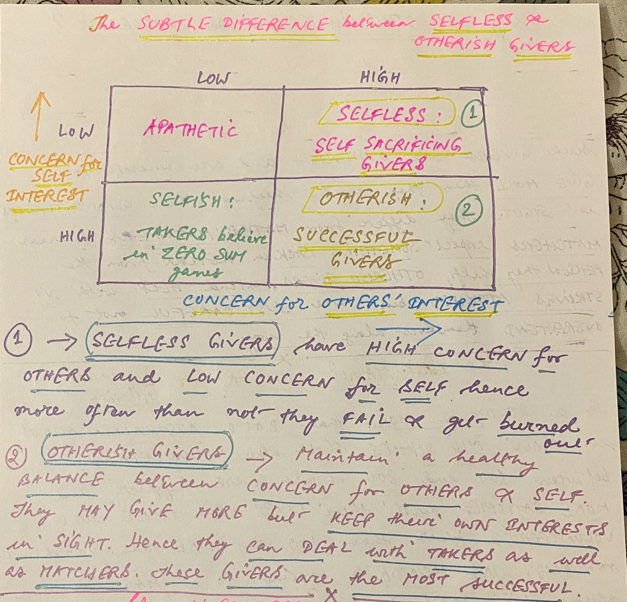 The SUBTLE DIFFERENCE between SELFLESS &
OTHERISH GIVERS
LOW HIGH
LOW
APATHETIC
SELFLESS : 1
SELF SACRIFICING
GIVERS
CONCERN for
SELF
INTEREST
HIGH
SELFISH :
TAKERS believe
in ZERO SUM
games
OTHERISH : 2
SUCCESSFUL
GIVERS
CONCERN for OTHERS' INTEREST
1 → SELFLESS GIVERS have HIGH CONCERN for
OTHERS and LOW CONCERN for SELF hence
more often than not they FAIL & get burned
out
2) OTHERISH GIVERS → Maintain a healthy
BALANCE between CONCERN for OTHERS & SELF.
They MAY GIVE MORE but KEEP their OWN INTERESTS
in SIGHT. Hence they can DEAL with TAKERS as well
as MATCHERS. These GIVERS are the MOST SUCCESSFUL.